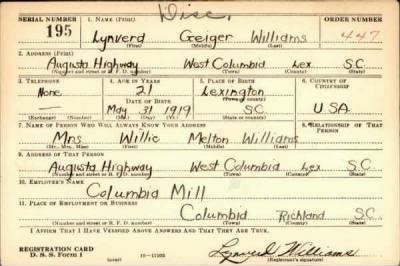 Disc.
SERIAL NUMBER 1. NAME (Print) ORDER NUMBER
195 Lynverd Geiger Williams 447
(First) (Middle) (Last)
2. ADDRESS (Print)
Augusta Highway West Columbia Lex S.C.
(Number and street or R. F. D. number) (Town) (County) (State)
3. TELEPHONE 4. AGE IN YEARS 5. PLACE OF BIRTH 6. COUNTRY OF CITIZENSHIP
None 21 Lexington
DATE OF BIRTH (Town or county)
May 31 1919 S.C. U.S.A.
(Exchange) (Number) (Mo.) (Day) (Yr.) (State or country)
7. NAME OF PERSON WHO WILL ALWAYS KNOW YOUR ADDRESS 8. RELATIONSHIP OF THAT PERSON
Mrs Willie Melton Williams
(Mr., Mrs., Miss) (First) (Middle) (Last)
9. ADDRESS OF THAT PERSON
Augusta Highway West Columbia Lex S.C.
(Number and street or R. F. D. number) (Town) (County) (State)
10. EMPLOYER'S NAME
Columbia Mill
11. PLACE OF EMPLOYMENT OR BUSINESS
Columbia Richland S.C.
(Number and street or R. F. D. number) (Town) (County) (State)
I AFFIRM THAT I HAVE VERIFIED ABOVE ANSWERS AND THAT THEY ARE TRUE.
REGISTRATION CARD
D. S. S. Form 1 Lynverd Williams
(over) (Registrant's signature)